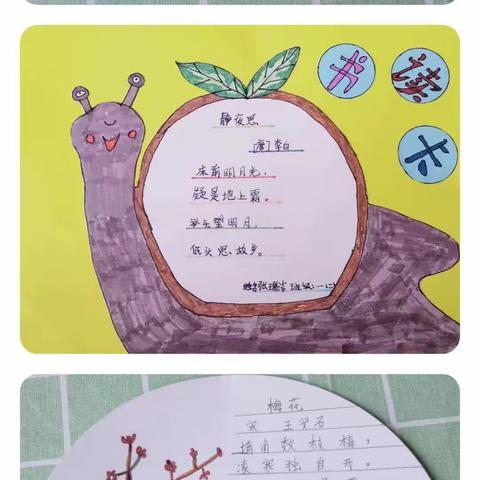 读书卡
静夜思
[唐]李白
床前明月光，
疑是地上霜。
举头望明月，
低头思故乡。
梅花
宋 王安石
墙角数枝梅，
凌寒独自开。